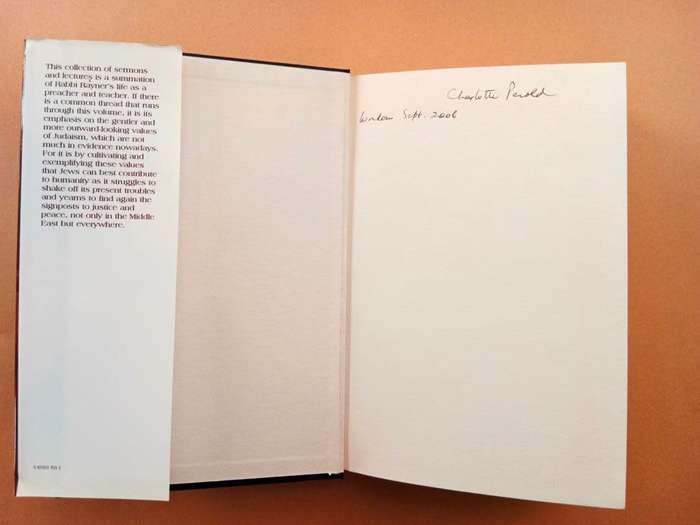 This collection of sermons
and lectures is a summation
of Rabbi Rayner's life as a
preacher and teacher. If there
is a common thread that runs
through this volume, it is its
emphasis on the gentler and
more outward-looking values
of Judaism, which are not
much in evidence nowadays.
For it is by cultivating and
exemplifying these values
that Jews can best contribute
to humanity as it struggles to
shake off its present troubles
and yearns to find again the
signposts to justice and
peace, not only in the Middle
East but everywhere.
Charlotte
London Sept. 2006